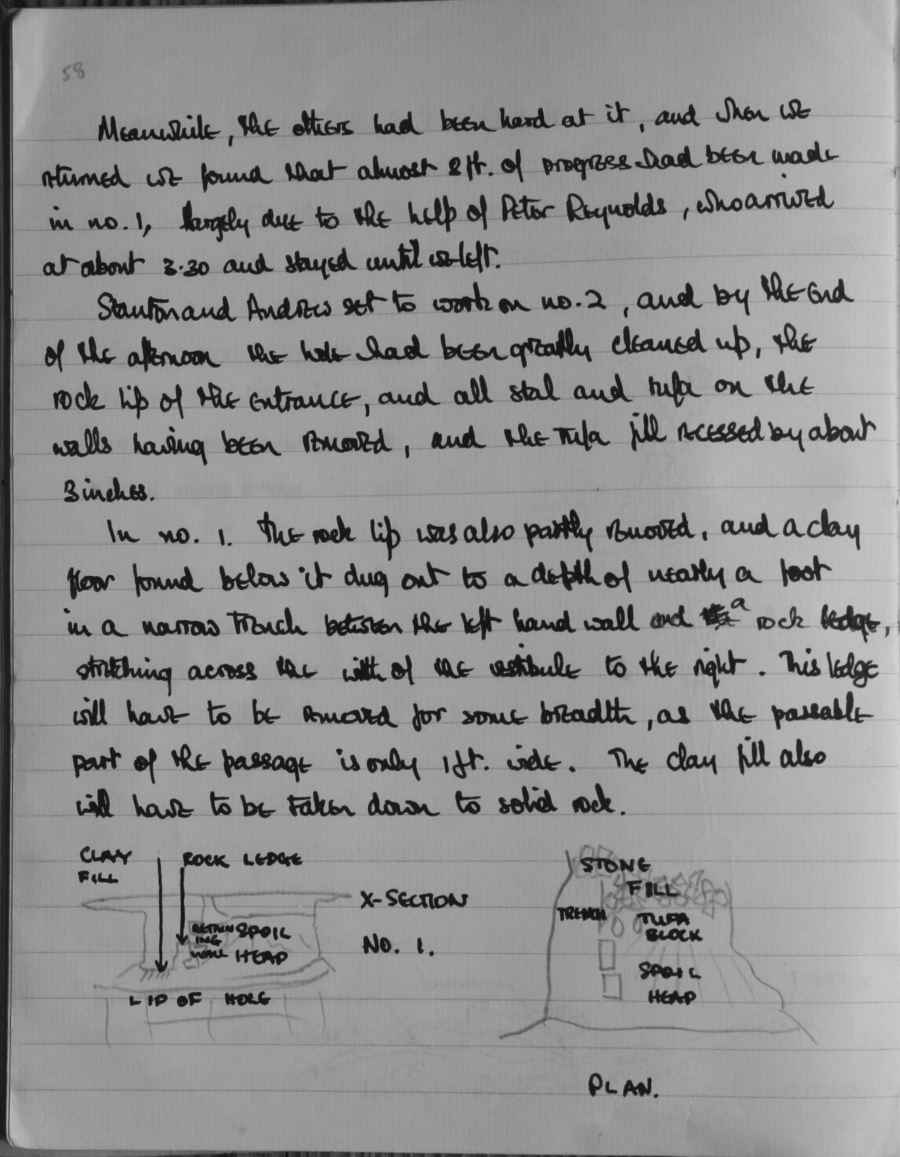 58
Meanwhile, the others had been hard at it, and when we
returned we found that almost 2ft. of progress had been made
in no. 1, largely due to the help of Peter Reynolds, who arrived
at about 3.30 and stayed until we left.
Stanton and Andrew set to work on no. 2, and by the end
of the afternoon the hole had been greatly cleaned up, the
rock lip of the entrance, and all stal and tufa on the
walls having been removed, and the tufa fill recessed by about
3 inches.
In no. 1. the rock lip was also partly removed, and a clay
floor found below it dug out to a depth of nearly a foot
in a narrow trench between the left hand wall and a rock ledge,
stretching across the width of the vestibule to the right. This ledge
will have to be removed for some breadth, as the passable
part of the passage is only 1ft. wide. The clay fill also
will have to be taken down to solid rock.
CLAY FILL
ROCK LEDGE
RETAINING WALL
SPOIL HEAP
LIP OF HOLE
X-SECTION
NO. 1.
STONE FILL
TRENCH
TUFA BLOCK
SPOIL HEAP
PLAN.